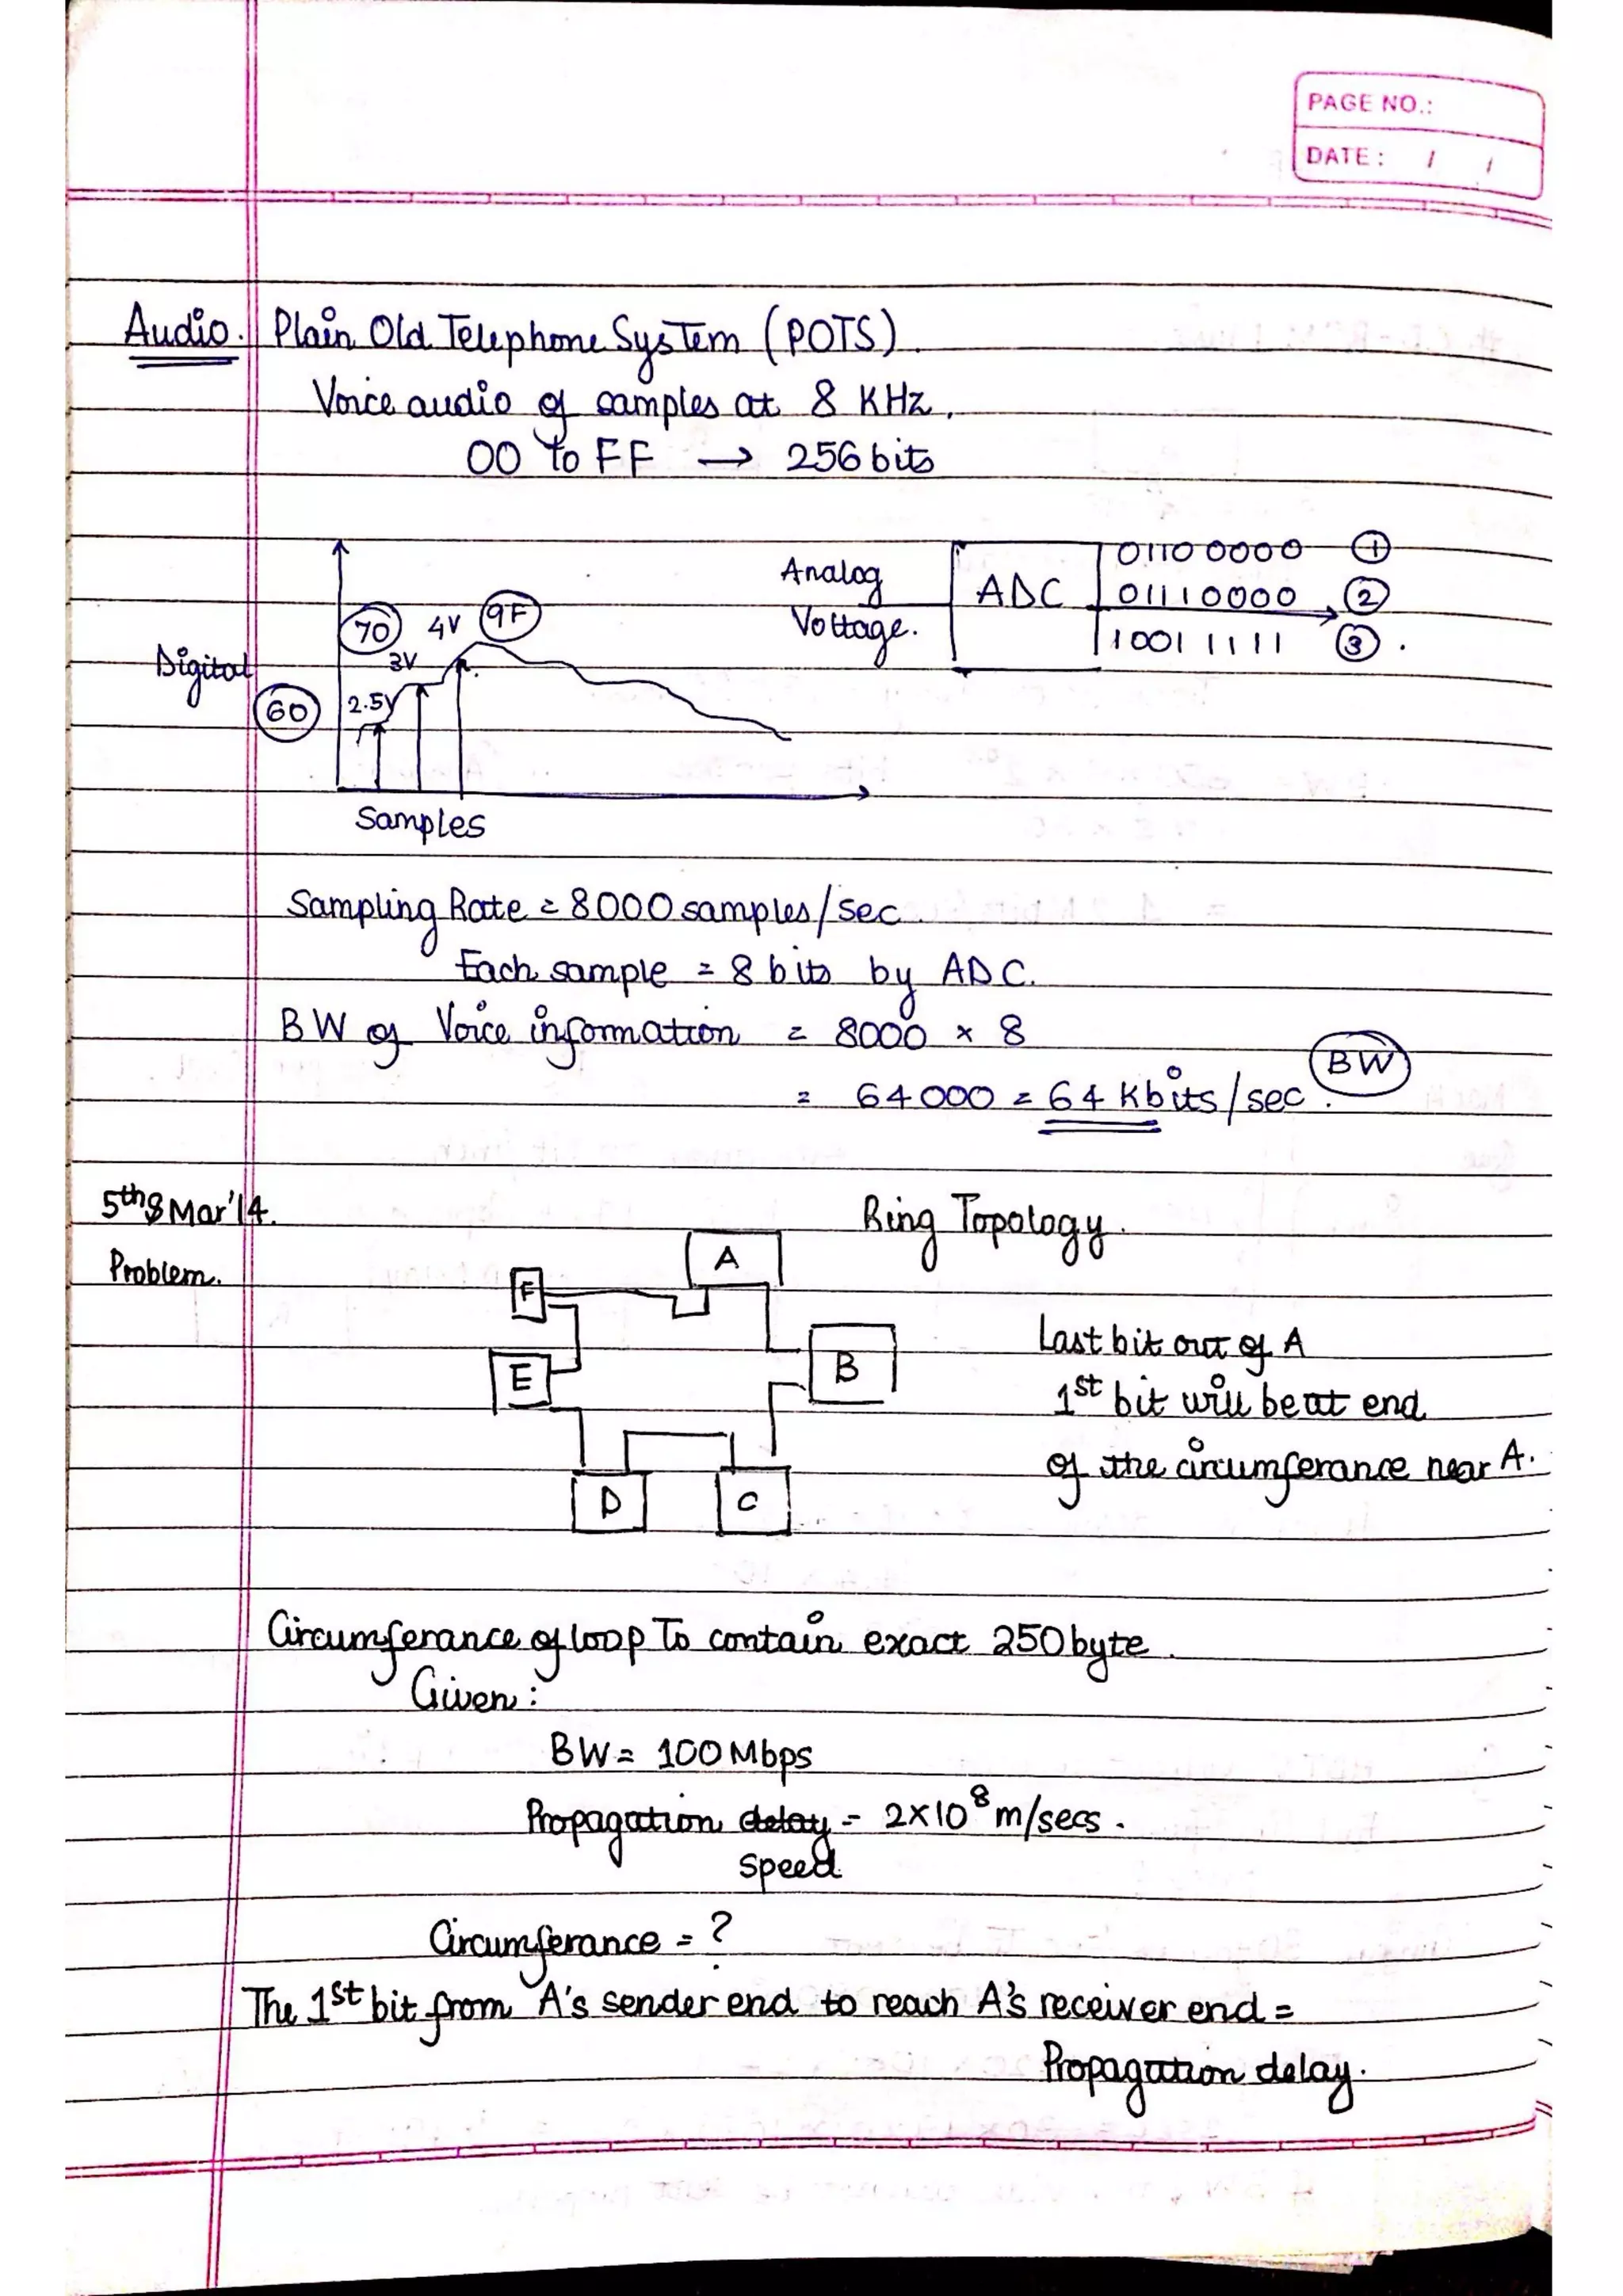 PAGE NO.:
DATE: / /
Audio. Plain Old Telephone System (POTS).
Voice audio of samples at 8 KHz.
00 to FF → 256 bits
Analog
Voltage.
ADC
0110 0000 ①
01110000 ②
10011111 ③ .
Digital
70
4V
9F
3V
60
2.5V
Samples
Sampling Rate = 8000 samples/sec.
Each sample = 8 bits by ADC.
BW of Voice information = 8000 × 8
= 64000 = 64 Kbits/sec. BW
5th Mar'14.
Ring Topology.
Problem.
A
F
B
E
D
C
Last bit out of A
1st bit will be at end
of the circumferance near A.
Circumferance of loop To contain exact 250 byte.
Given:
BW = 100 Mbps
Propagation delay = 2×10⁸ m/secs.
Speed
Circumferance = ?
The 1st bit from A's sender end to reach A's receiver end =
Propagation delay.